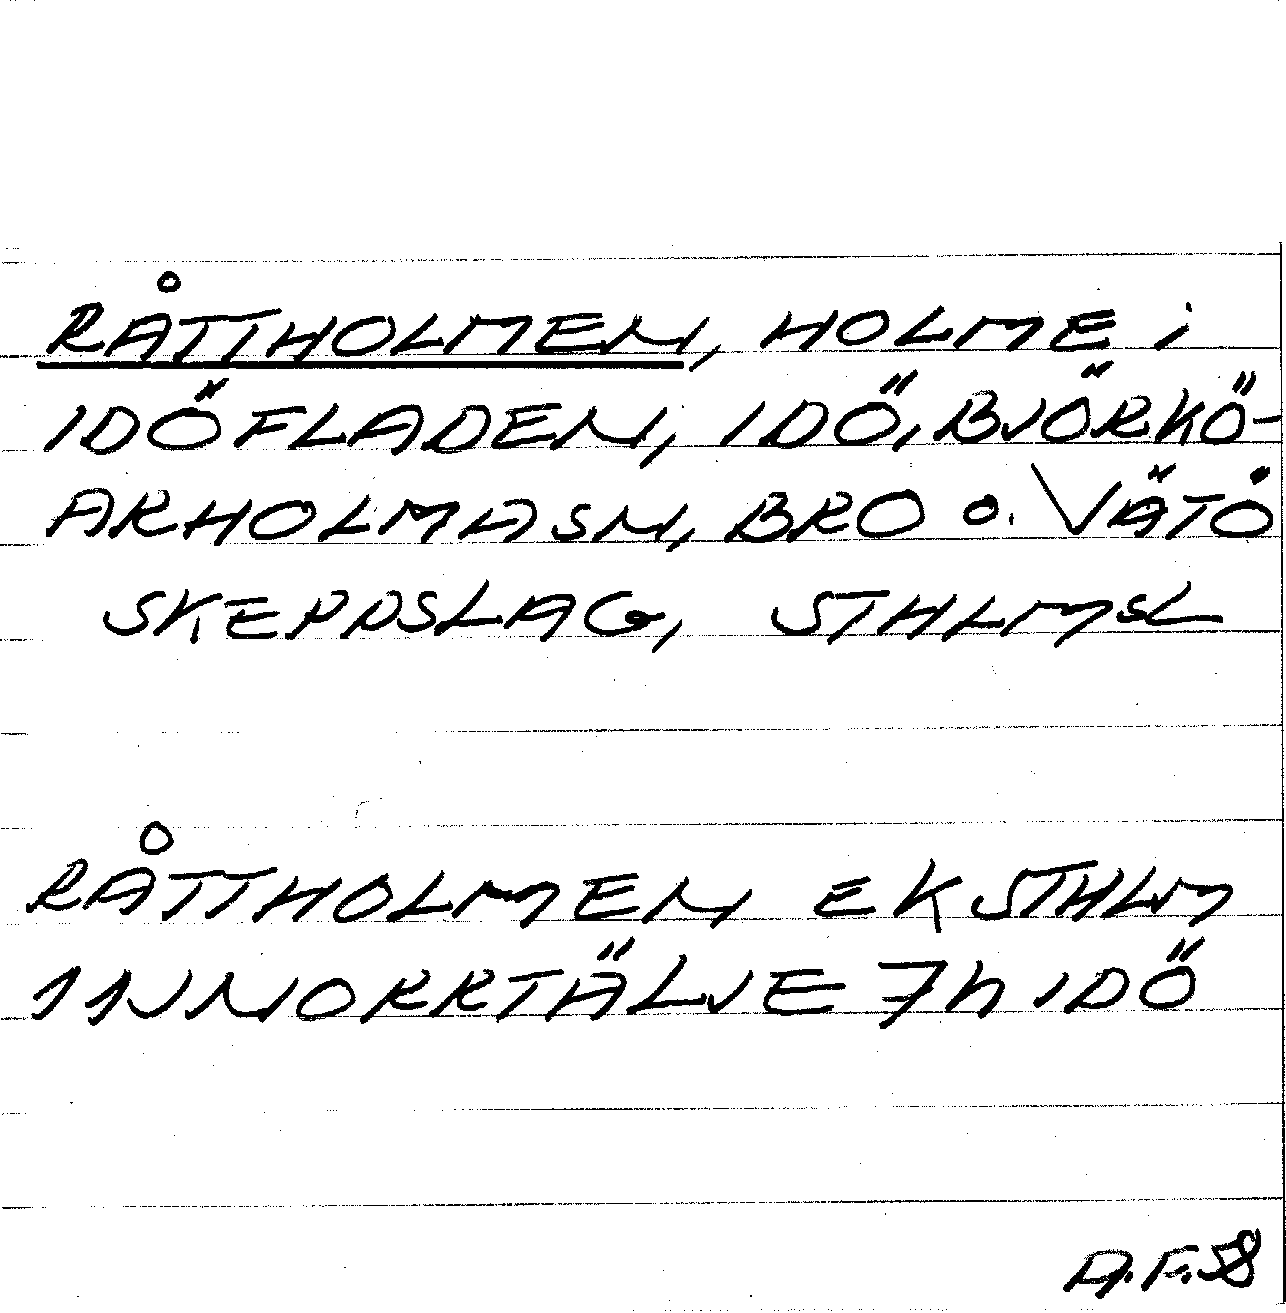 RÅTTHOLMEN, HOLME i
IDÖFLADEN, IDÖ, BJÖRKÖ-
ARHOLMASN, BRO o. VÄTÖ
SKEPPSLAG, STHLMSL
RÅTTHOLMEN EK STHLM
11J NORRTÄLJE 7h IDÖ
A.F.58